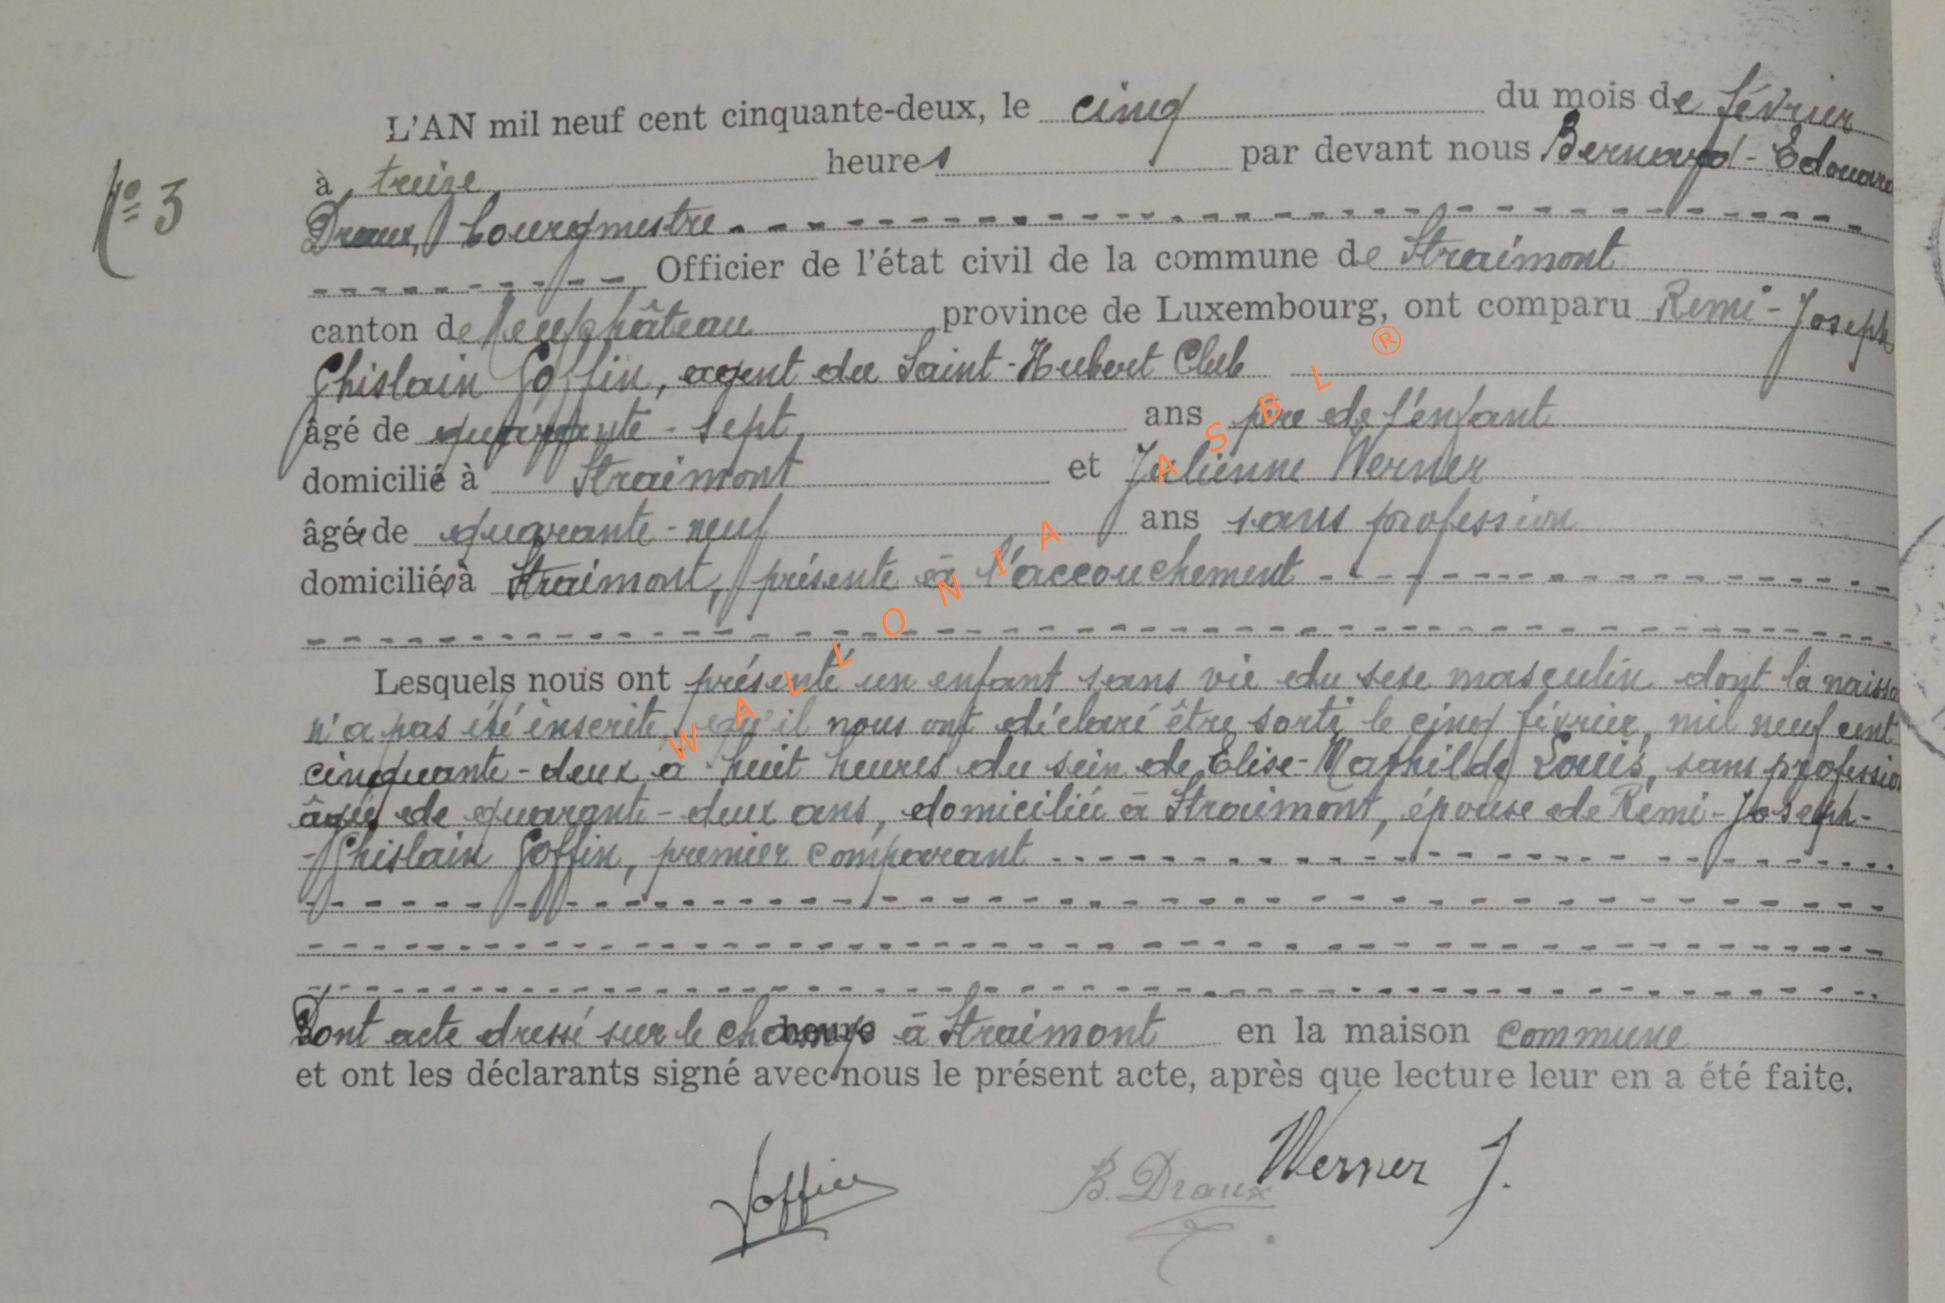 N° 3
L'AN mil neuf cent cinquante-deux, le cinq du mois de février
à treize heures par devant nous Bernard-Edouard
Draux, bourgmestre
Officier de l'état civil de la commune de Straimont
canton de Neufchâteau province de Luxembourg, ont comparu Remi-Joseph
Ghislain Goffin, agent du Saint-Hubert Club
âgé de quarante-sept ans père de l'enfant
domicilié à Straimont et Julienne Werner
âgée de quarante-neuf ans sans profession
domiciliée à Straimont, présente à l'accouchement
Lesquels nous ont présenté un enfant sans vie du sexe masculin dont la naissa
n'a pas été inscrite, qu'il nous ont déclaré être sorti le cinq février, mil neuf cent
cinquante-deux à huit heures du sein de Elise-Mathilde Louis, sans profession
âgée de quarante-deux ans, domiciliée à Straimont, épouse de Rémi-Joseph-
-Ghislain Goffin, premier comparant
Dont acte dressé sur le champ à Straimont en la maison commune
et ont les déclarants signé avec nous le présent acte, après que lecture leur en a été faite.
Goffin B. Draux Werner J.
WALLONIA ASBL ®